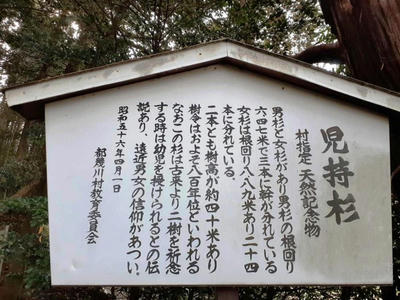 児持杉
村指定 天然記念物
男杉と女杉があり男杉の根回り
六・四七米で三本に幹が分れている
女杉は根回り八・八九米あり二十四
本に分れている。
二本とも樹高が約四十米あり
樹令はおよそ八百年位といわれる
なおこの杉は古来より二樹を祈念
する時は幼児を授けられるとの伝
説あり、遠近男女の信仰があつい。
昭和五十六年四月一日
都幾川村教育委員会